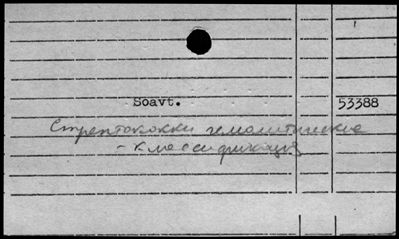 Soavt. 53388
Стрептококки гемолитические
- классификация